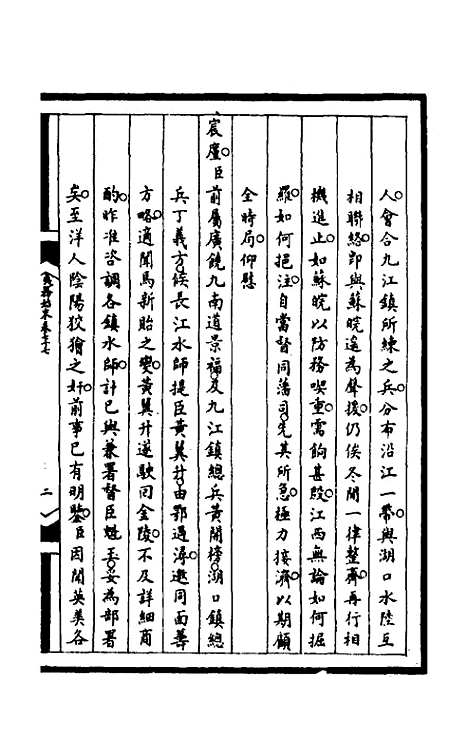 人會合九江鎮所練之兵分布沿江一帶與湖口水陸互
相聯絡即與蘇皖遙為聲援仍俟冬間一律整齊再行相
機進止如蘇皖以防務喫重需餉甚殷江西無論如何掘
羅如何挹注自當督同藩司先其所急極力接濟以期顧
全時局仰慰
宸廑臣前屬廣饒九南道景福及九江鎮總兵黃開榜湖口鎮總
兵丁義方候長江水師提臣黃翼升由鄂過潯邀同面籌
方略適聞馬新貽之變黃翼升遂駛回金陵不及詳細商
酌昨准咨調各鎮水師計已與兼署督臣魁玉妥為部署
矣至洋人陰陽狡獪之奸前事已有明鑒臣因聞英美各
夷務始末卷七十七
二